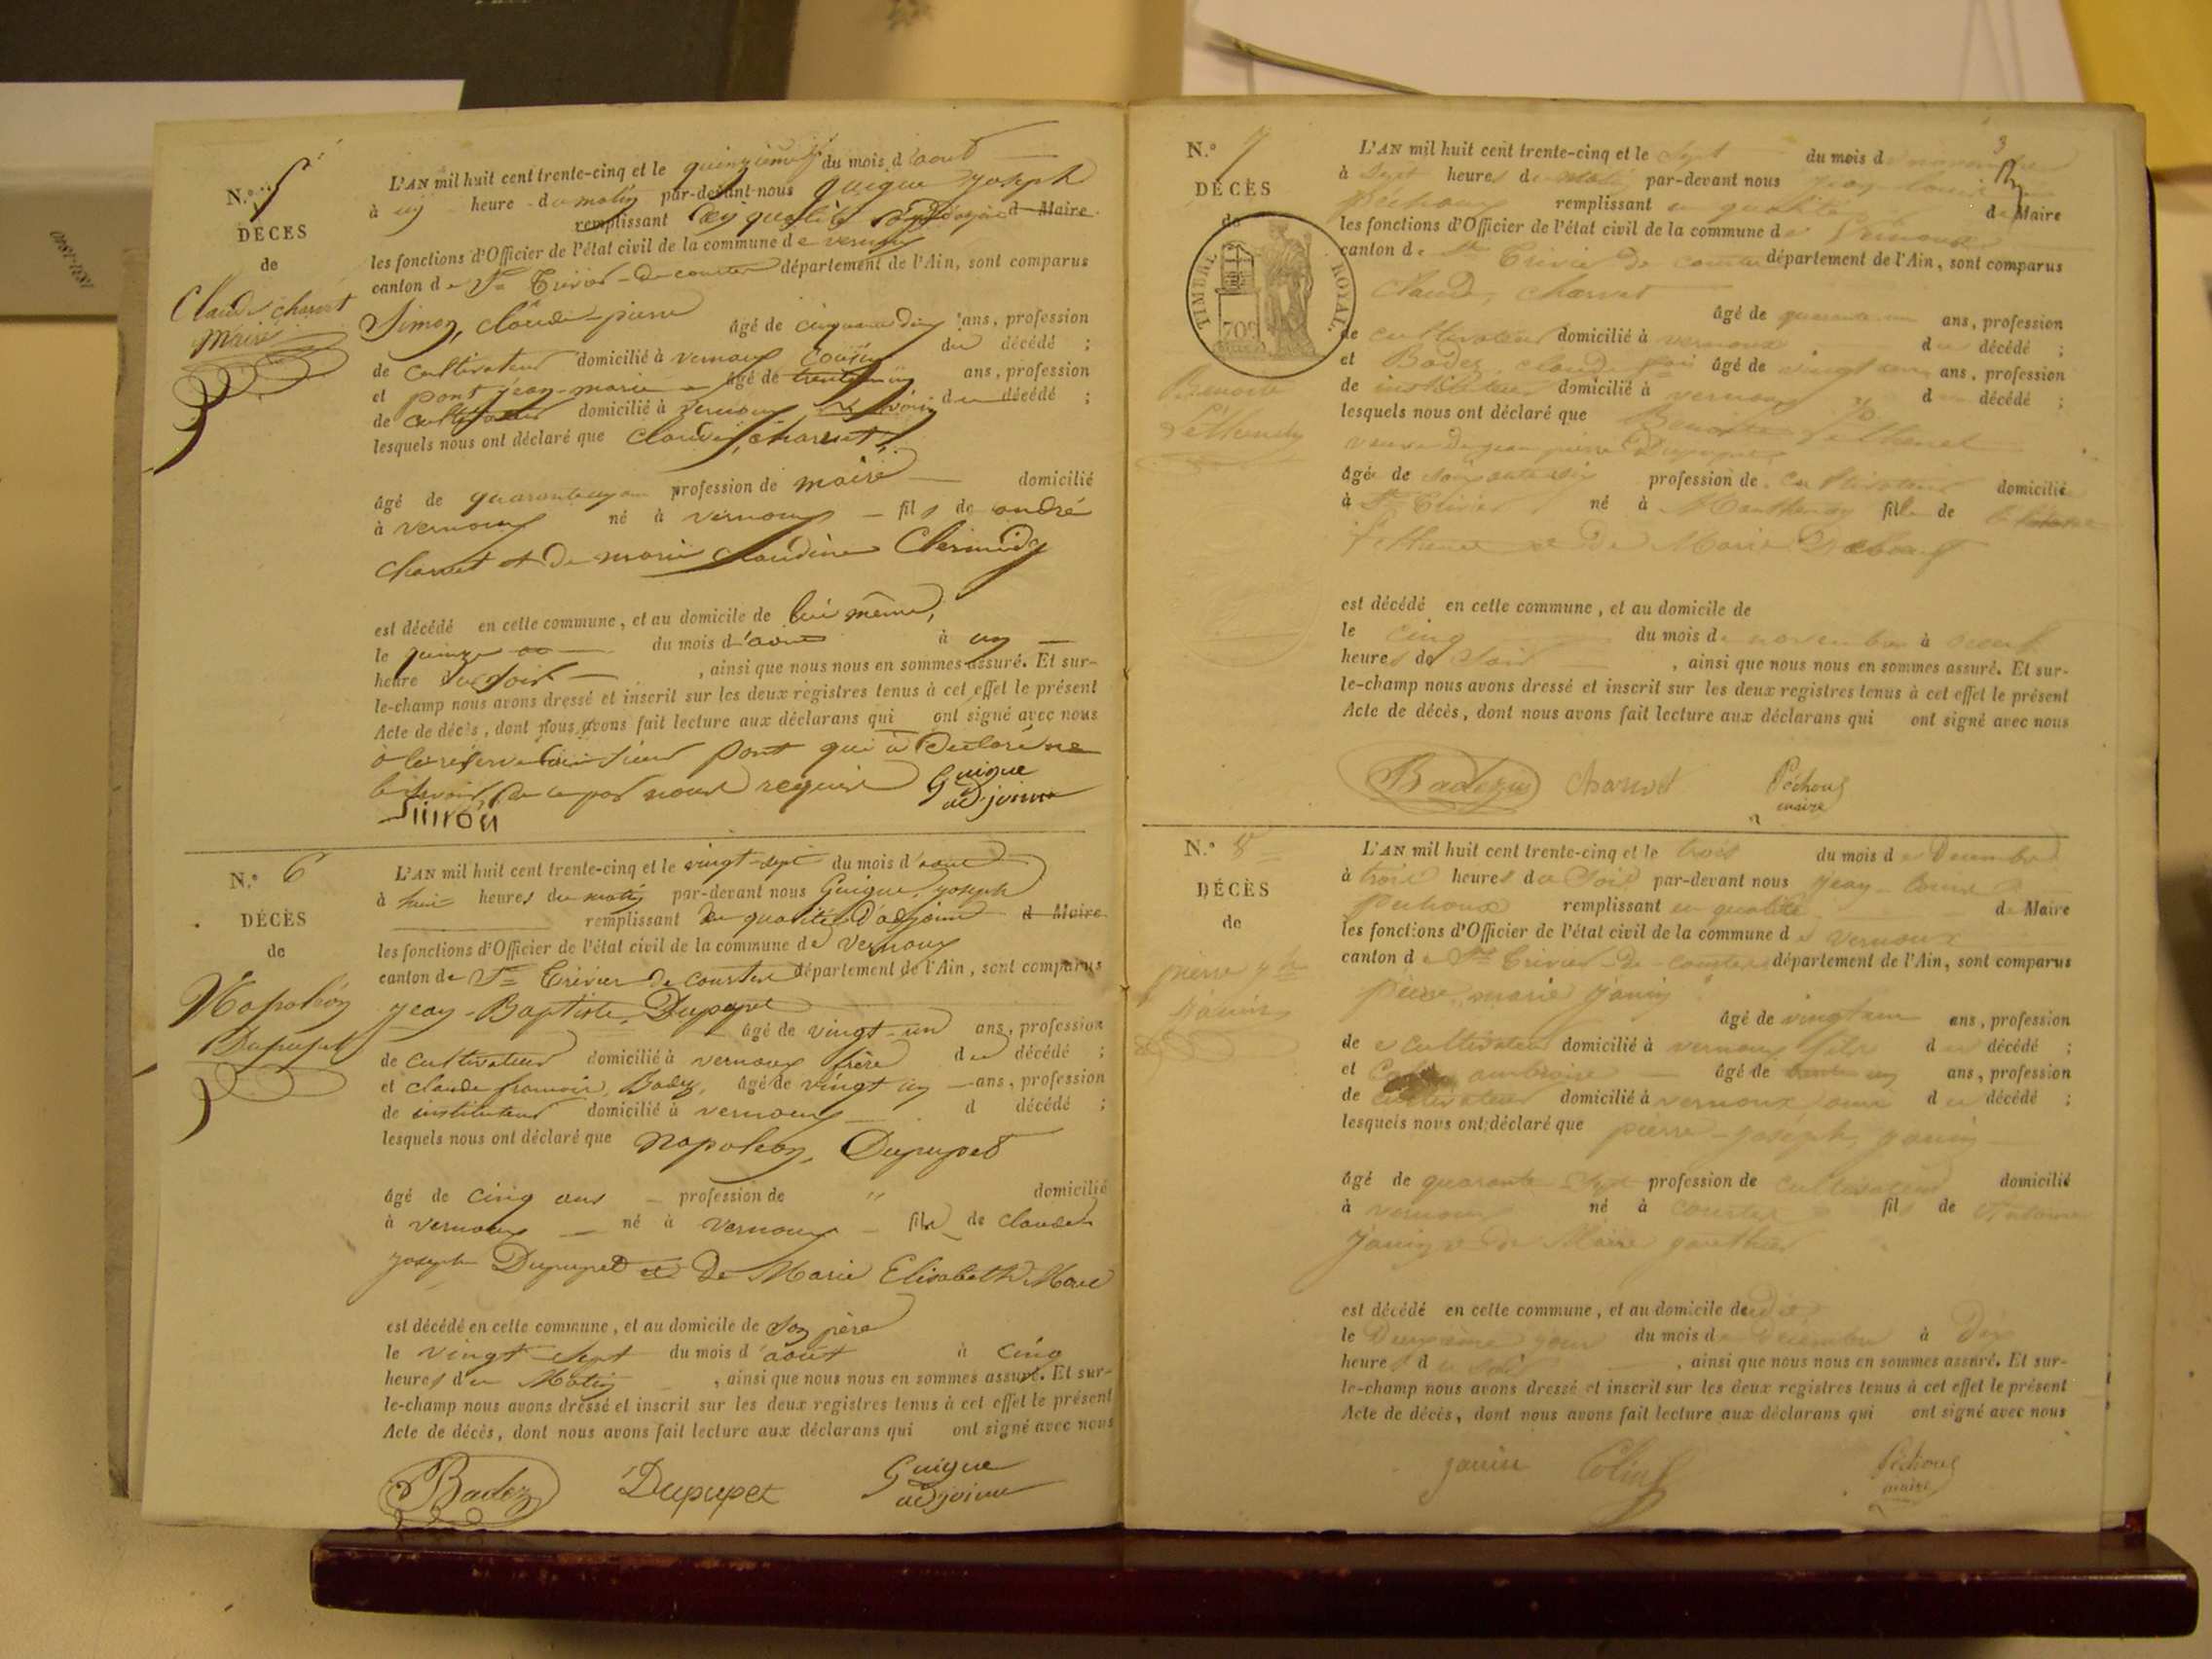 N.° 5
DÉCÈS
de
Claude charvet
maire
L'AN mil huit cent trente-cinq et le quinzième du mois d'aout
à un heure du matin par-devant nous guigue joseph
remplissant en qualité d'adjoint d Maire
les fonctions d'Officier de l'état civil de la commune de vernoux
canton de St Trivier-de-courtes département de l'Ain, sont comparus
Simon, claude-pierre
âgé de ans, profession
de cultivateur domicilié à vernoux cousin du décédé ;
et pont jean-marie âgé de ans, profession
de cultivateur domicilié à vernoux du décédé ;
lesquels nous ont déclaré que claude, charvet
âgé de quarante profession de maire domicilié
à vernoux né à vernoux fils de andré
charvet et de marie claudine
est décédé en cette commune, et au domicile de lui même,
le quinze du mois d'aout à un
heure du soir , ainsi que nous nous en sommes assuré. Et sur-
le-champ nous avons dressé et inscrit sur les deux registres tenus à cet effet le présent
Acte de décès, dont nous avons fait lecture aux déclarans qui ont signé avec nous
à la réserve dud. sieur pont qui a déclaré ne
le savoir de ce par nous requis Guigue
adjoint
Simon
N.° 6
DÉCÈS
de
Napoléon
Dupupet
L'AN mil huit cent trente-cinq et le vingt-sept du mois d'aout
à huit heures du matin par-devant nous Guigue, joseph
remplissant en qualité d'adjoint d Maire
les fonctions d'Officier de l'état civil de la commune de vernoux
canton de St Trivier de courtes département de l'Ain, sont comparus
jean-Baptiste Dupupet
âgé de vingt-un ans, profession
de cultivateur domicilié à vernoux frère du décédé ;
et claude françois Badez, âgé de vingt un ans, profession
de instituteur domicilié à vernoux d décédé ;
lesquels nous ont déclaré que napoléon, Dupupet
âgé de cinq ans profession de " domicilié
à vernoux né à vernoux fils de claude
joseph Dupupet et de Marie Elisabeth
est décédé en cette commune, et au domicile de son père
le vingt-sept du mois d'août à cinq
heures du Matin , ainsi que nous nous en sommes assuré. Et sur-
le-champ nous avons dressé et inscrit sur les deux registres tenus à cet effet le présent
Acte de décès, dont nous avons fait lecture aux déclarans qui ont signé avec nous
Badez Dupupet Guigue
adjoint
3
N.° 7
DÉCÈS
de
TIMBRE ROYAL.
Benoite
L'AN mil huit cent trente-cinq et le sept du mois de novembre
à sept heures du matin par-devant nous jean-louis
péchoux remplissant en qualité de Maire
les fonctions d'Officier de l'état civil de la commune de Vernoux
canton de St Trivier de courtes département de l'Ain, sont comparus
claude, charvet
âgé de quarante un ans, profession
de cultivateur domicilié à vernoux du décédé ;
et Badez, claude âgé de vingt un ans, profession
de instituteur domicilié à vernoux du décédé ;
lesquels nous ont déclaré que Benoite
veuve de jean pierre
âgée de soixante profession de cultivateur domicilié
à St Trivier né à fille de
et de Marie
est décédé en cette commune, et au domicile de
le cinq du mois de novembre à
heures de soir , ainsi que nous nous en sommes assuré. Et sur-
le-champ nous avons dressé et inscrit sur les deux registres tenus à cet effet le présent
Acte de décès, dont nous avons fait lecture aux déclarans qui ont signé avec nous
Badez charvet Péchoux
maire
N.° 8
DÉCÈS
de
pierre jph
janin
L'AN mil huit cent trente-cinq et le trois du mois de Décembre
à trois heures du soir par-devant nous jean-louis
péchoux remplissant en qualité de Maire
les fonctions d'Officier de l'état civil de la commune de vernoux
canton de St Trivier-de-courtes département de l'Ain, sont comparus
pierre, marie janin
âgé de vingt un ans, profession
de cultivateur domicilié à vernoux fils du décédé ;
et ambroise âgé de ans, profession
de cultivateur domicilié à vernoux ami du décédé ;
lesquels nous ont déclaré que pierre-joseph janin
âgé de quarante sept profession de cultivateur domicilié
à vernoux né à courtes fils de Antoine
janin et de Marie gauthier
est décédé en cette commune, et au domicile de
le deuxième jour du mois de décembre à Dix
heures du soir , ainsi que nous nous en sommes assuré. Et sur-
le-champ nous avons dressé et inscrit sur les deux registres tenus à cet effet le présent
Acte de décès, dont nous avons fait lecture aux déclarans qui ont signé avec nous
janin Colin Péchoux
maire